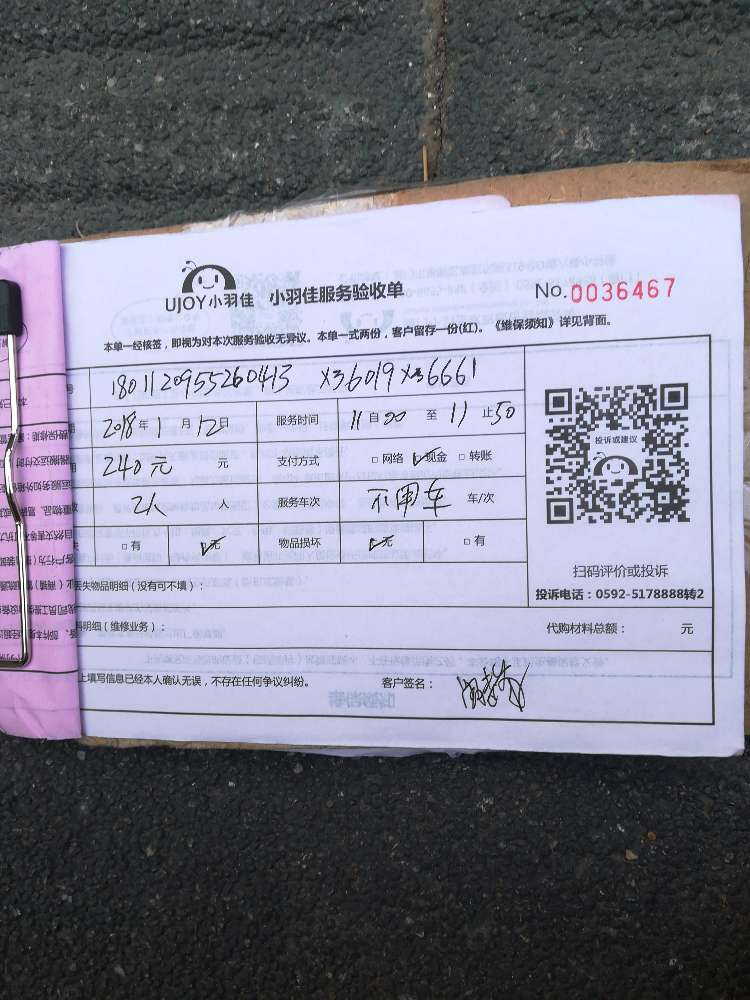 UJOY小羽佳 小羽佳服务验收单 No.0036467
本单一经核签，即视为对本次服务验收无异议。本单一式两份，客户留存一份(红)。《维保须知》详见背面。
号 1801120955260413 X36019 X36661
2018年1月12日 服务时间 11自00至11止50
240元 元 支付方式 □网络 ☑现金 □转账
2人 人 服务车次 不用车 车/次
□有 ☑无 物品损坏 ☑无 □有
投诉或建议
扫码评价或投诉
投诉电话：0592-5178888转2
丢失物品明细（没有可不填）：
明细（维修业务）： 代购材料总额： 元
上填写信息已经本人确认无误，不存在任何争议纠纷。 客户签名：